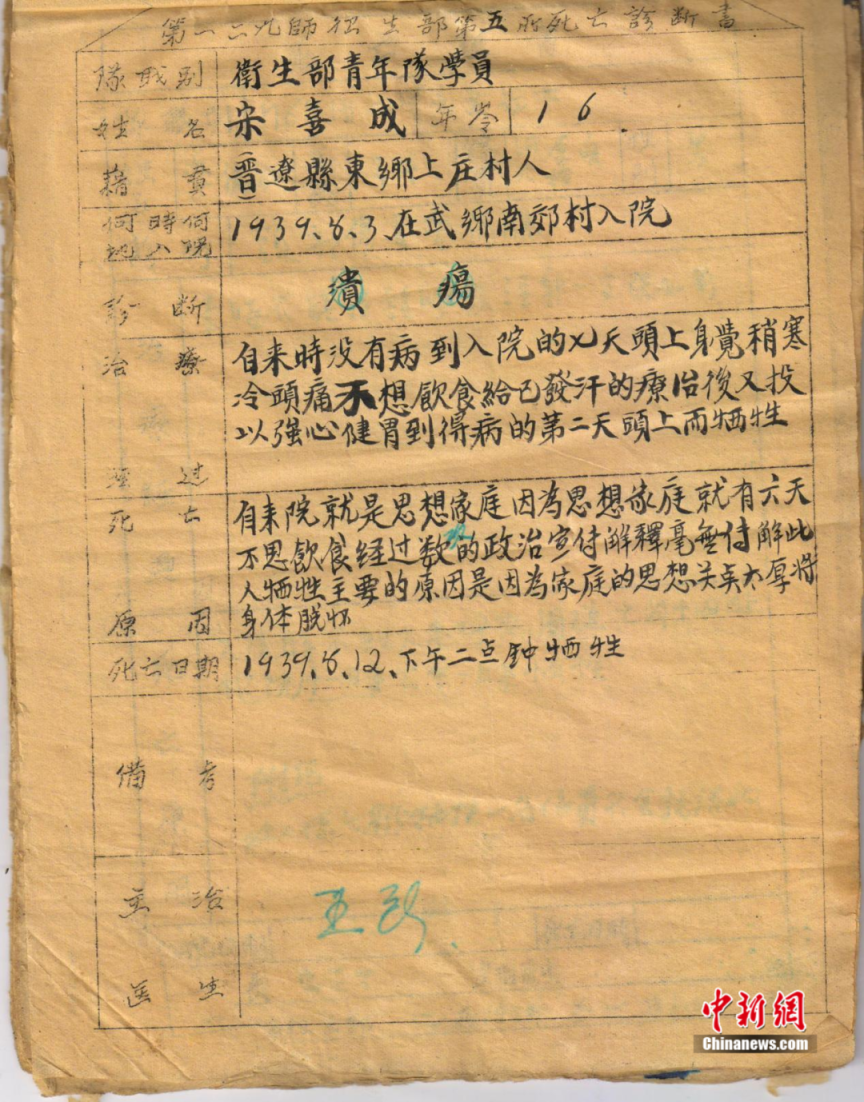 第一二九師衛生部第五所死亡診断書
隊職别 衛生部青年隊學員
姓名 宋喜成 年岺 16
籍貫 (晋)遼縣東鄉上庄村人
何時何地入院 1939、8、3、在武鄉南郊村入院
診断 潰瘍
治療 自来時没有病到入院的七天頭上身覺稍寒
冷頭痛不想飲食給已發汗的療治後又投
以强心健胃到得病的第二天頭上而牺牲
經过
死亡 自来院就是思想家庭因為思想家庭就有六天
不思飲食经过数次的政治宣传解釋毫無侍解此
人牺牲主要的原因是因為家庭的思想关点太厚将
原因 身体脱怀
死亡日期 1939、8、12、下午二点钟牺牲
備考
主治
医生
中新網
Chinanews.com